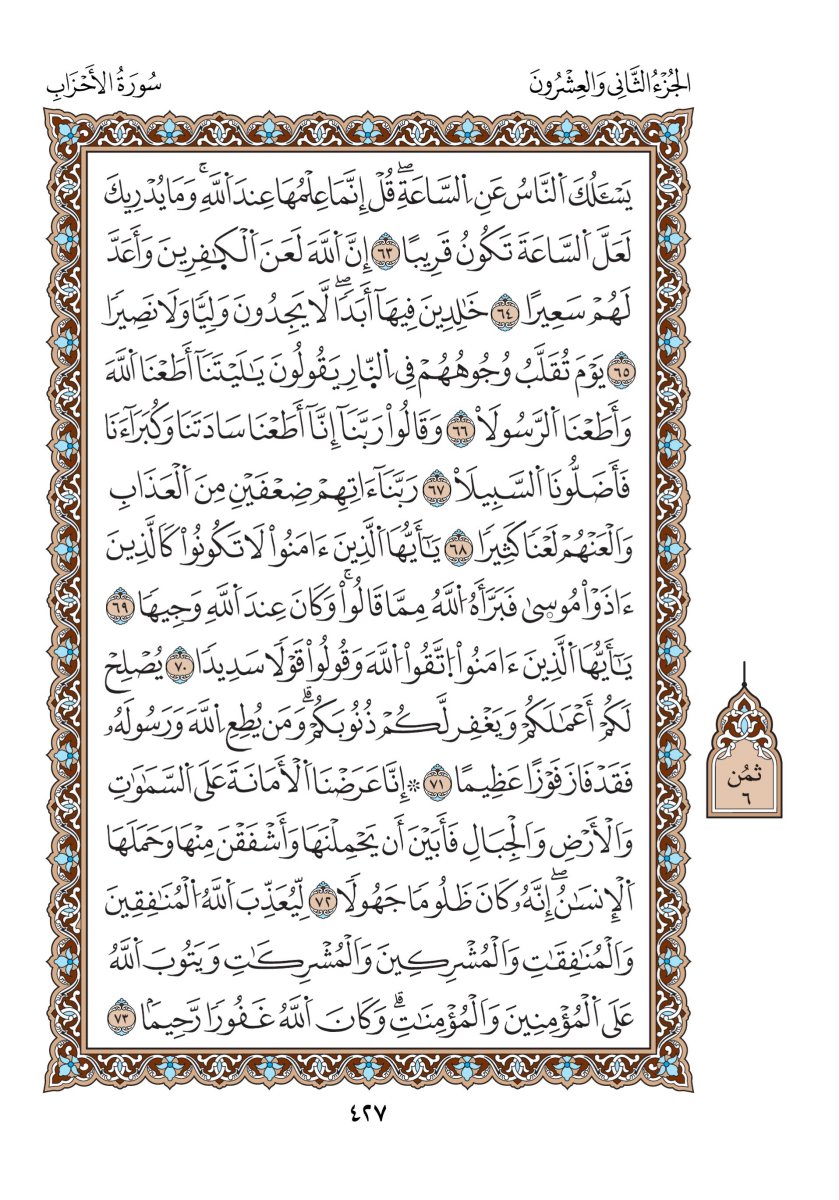 الجُزْءُ الثَّانِي وَالعِشْرُونَ
سُورَةُ الأَحْزَابِ
يَسْـَٔلُكَ اَ۬لنَّاسُ عَنِ اِ۬لسَّاعَةِۖ قُلْ إِنَّمَا عِلْمُهَا عِندَ اَ۬للَّهِۚ وَمَا يُدْرِيكَ
لَعَلَّ اَ۬لسَّاعَةَ تَكُونُ قَرِيبًا ٦٣ إِنَّ اَ۬للَّهَ لَعَنَ اَ۬لْكٰ۪فِرِينَ وَأَعَدَّ
لَهُمْ سَعِيرًا ٦٤ خَٰلِدِينَ فِيهَآ أَبَدٗاۖ لَّا يَجِدُونَ وَلِيّٗا وَلَا نَصِيرٗا
٦٥ يَوْمَ تُقَلَّبُ وُجُوهُهُمْ فِي اِ۬لنّ۪ارِ يَقُولُونَ يَٰلَيْتَنَآ أَطَعْنَا اَ۬للَّهَ
وَأَطَعْنَا اَ۬لرَّسُولَاْ ٦٦ وَقَالُواْ رَبَّنَآ إِنَّآ أَطَعْنَا سَادَتَنَا وَكُبَرَآءَنَا
فَأَضَلُّونَا اَ۬لسَّبِيلَاْ ٦٧ رَبَّنَآ ءَاتِهِمْ ضِعْفَيْنِ مِنَ اَ۬لْعَذَابِ
وَالْعَنْهُمْ لَعْنٗا كَثِيرٗا ٦٨ يَٰٓأَيُّهَا اَ۬لَّذِينَ ءَامَنُواْ لَا تَكُونُواْ كَالَّذِينَ
ءَاذَوْاْ مُوس۪يٰ فَبَرَّأَهُ اُ۬للَّهُ مِمَّا قَالُواْۚ وَكَانَ عِندَ اَ۬للَّهِ وَجِيهٗا ٦٩
يَٰٓأَيُّهَا اَ۬لَّذِينَ ءَامَنُواْ اُ۪تَّقُواْ اُ۬للَّهَ وَقُولُواْ قَوْلٗا سَدِيدٗا ٧٠ يُصْلِحْ
لَكُمْ أَعْمَٰلَكُمْ وَيَغْفِر لَّكُمْ ذُنُوبَكُمْۗ وَمَن يُطِعِ اِ۬للَّهَ وَرَسُولَهُۥ
فَقَدْ فَازَ فَوْزًا عَظِيمًا ٧١ ۞ إِنَّا عَرَضْنَا اَ۬لْأَمَانَةَ عَلَى اَ۬لسَّمَٰوَٰتِ
وَالْأَرْضِ وَالْجِبَالِ فَأَبَيْنَ أَن يَحْمِلْنَهَا وَأَشْفَقْنَ مِنْهَا وَحَمَلَهَا
اَ۬لْإِنسَٰنُۖ إِنَّهُۥ كَانَ ظَلُومٗا جَهُولٗا ٧٢ لِّيُعَذِّبَ اَ۬للَّهُ اُ۬لْمُنَٰفِقِينَ
وَالْمُنَٰفِقَٰتِ وَالْمُشْرِكِينَ وَالْمُشْرِكَٰتِ وَيَتُوبَ اَ۬للَّهُ
عَلَى اَ۬لْمُؤْمِنِينَ وَالْمُؤْمِنَٰتِۗ وَكَانَ اَ۬للَّهُ غَفُورٗا رَّحِيمٗا ٧٣
ثُمُن
٦
٤٢٧